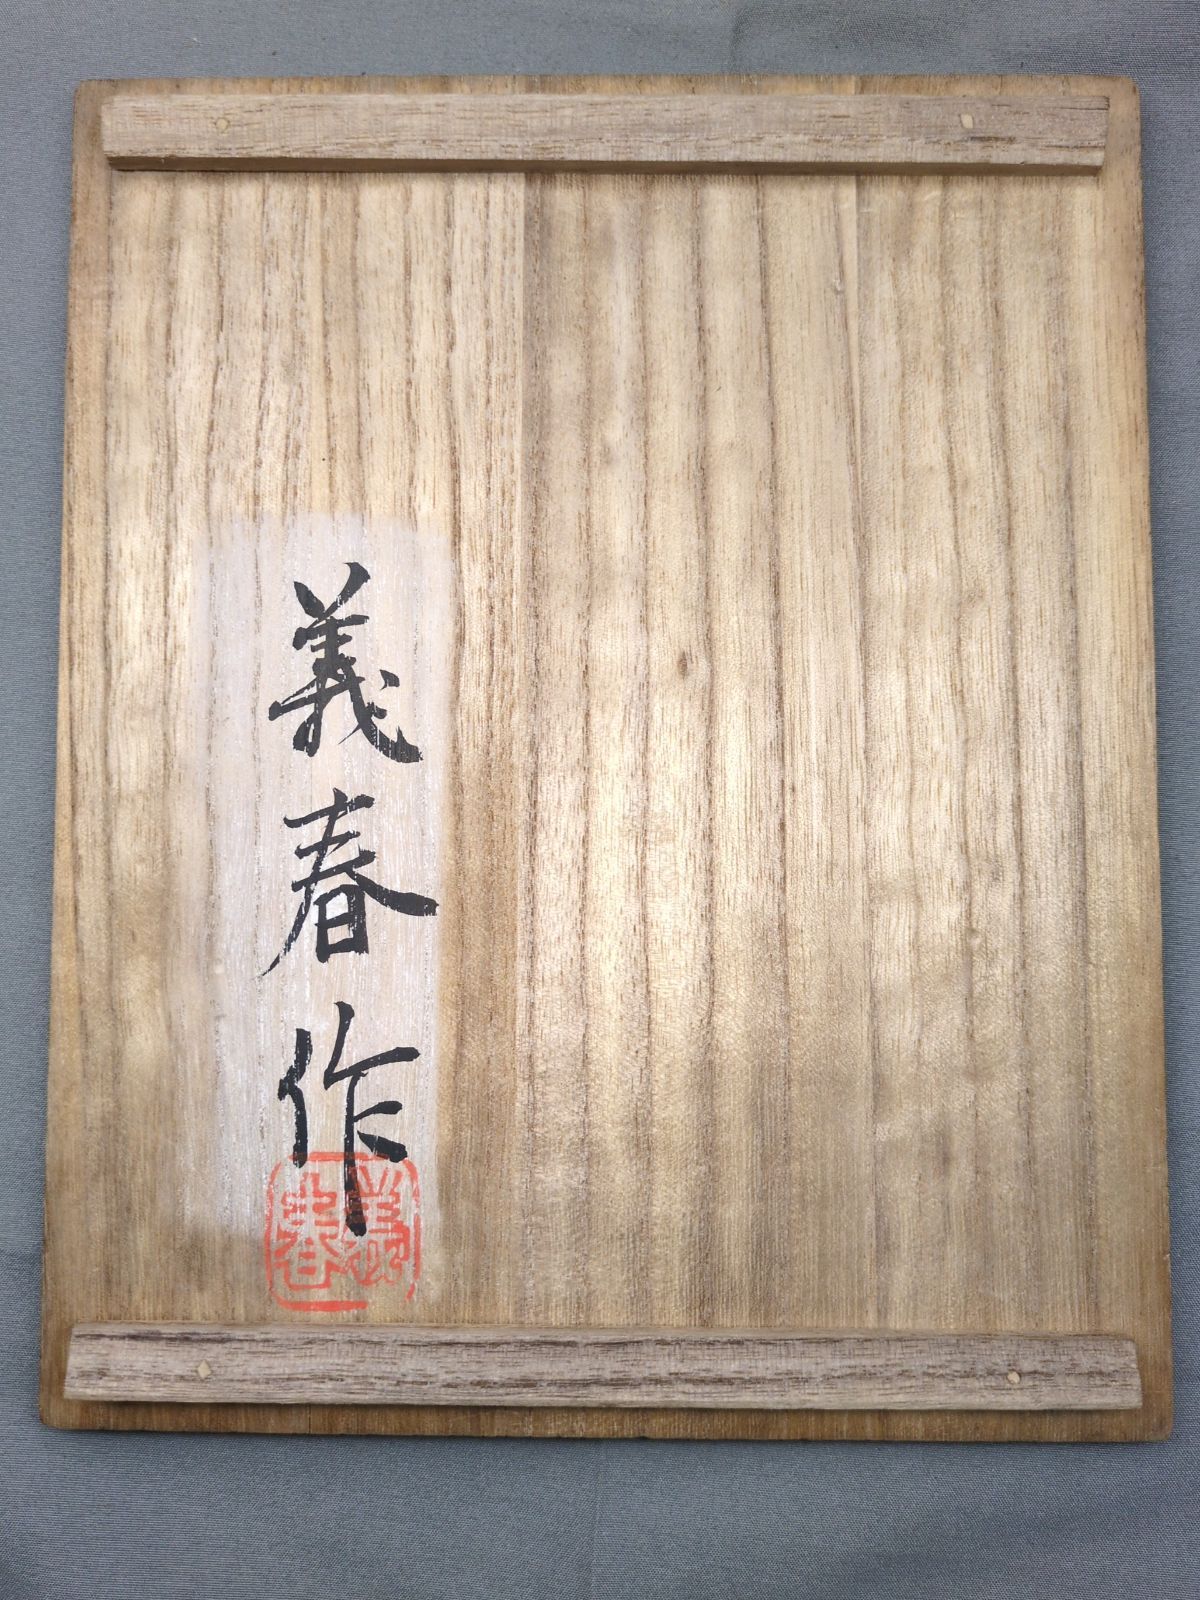 義春作
義春